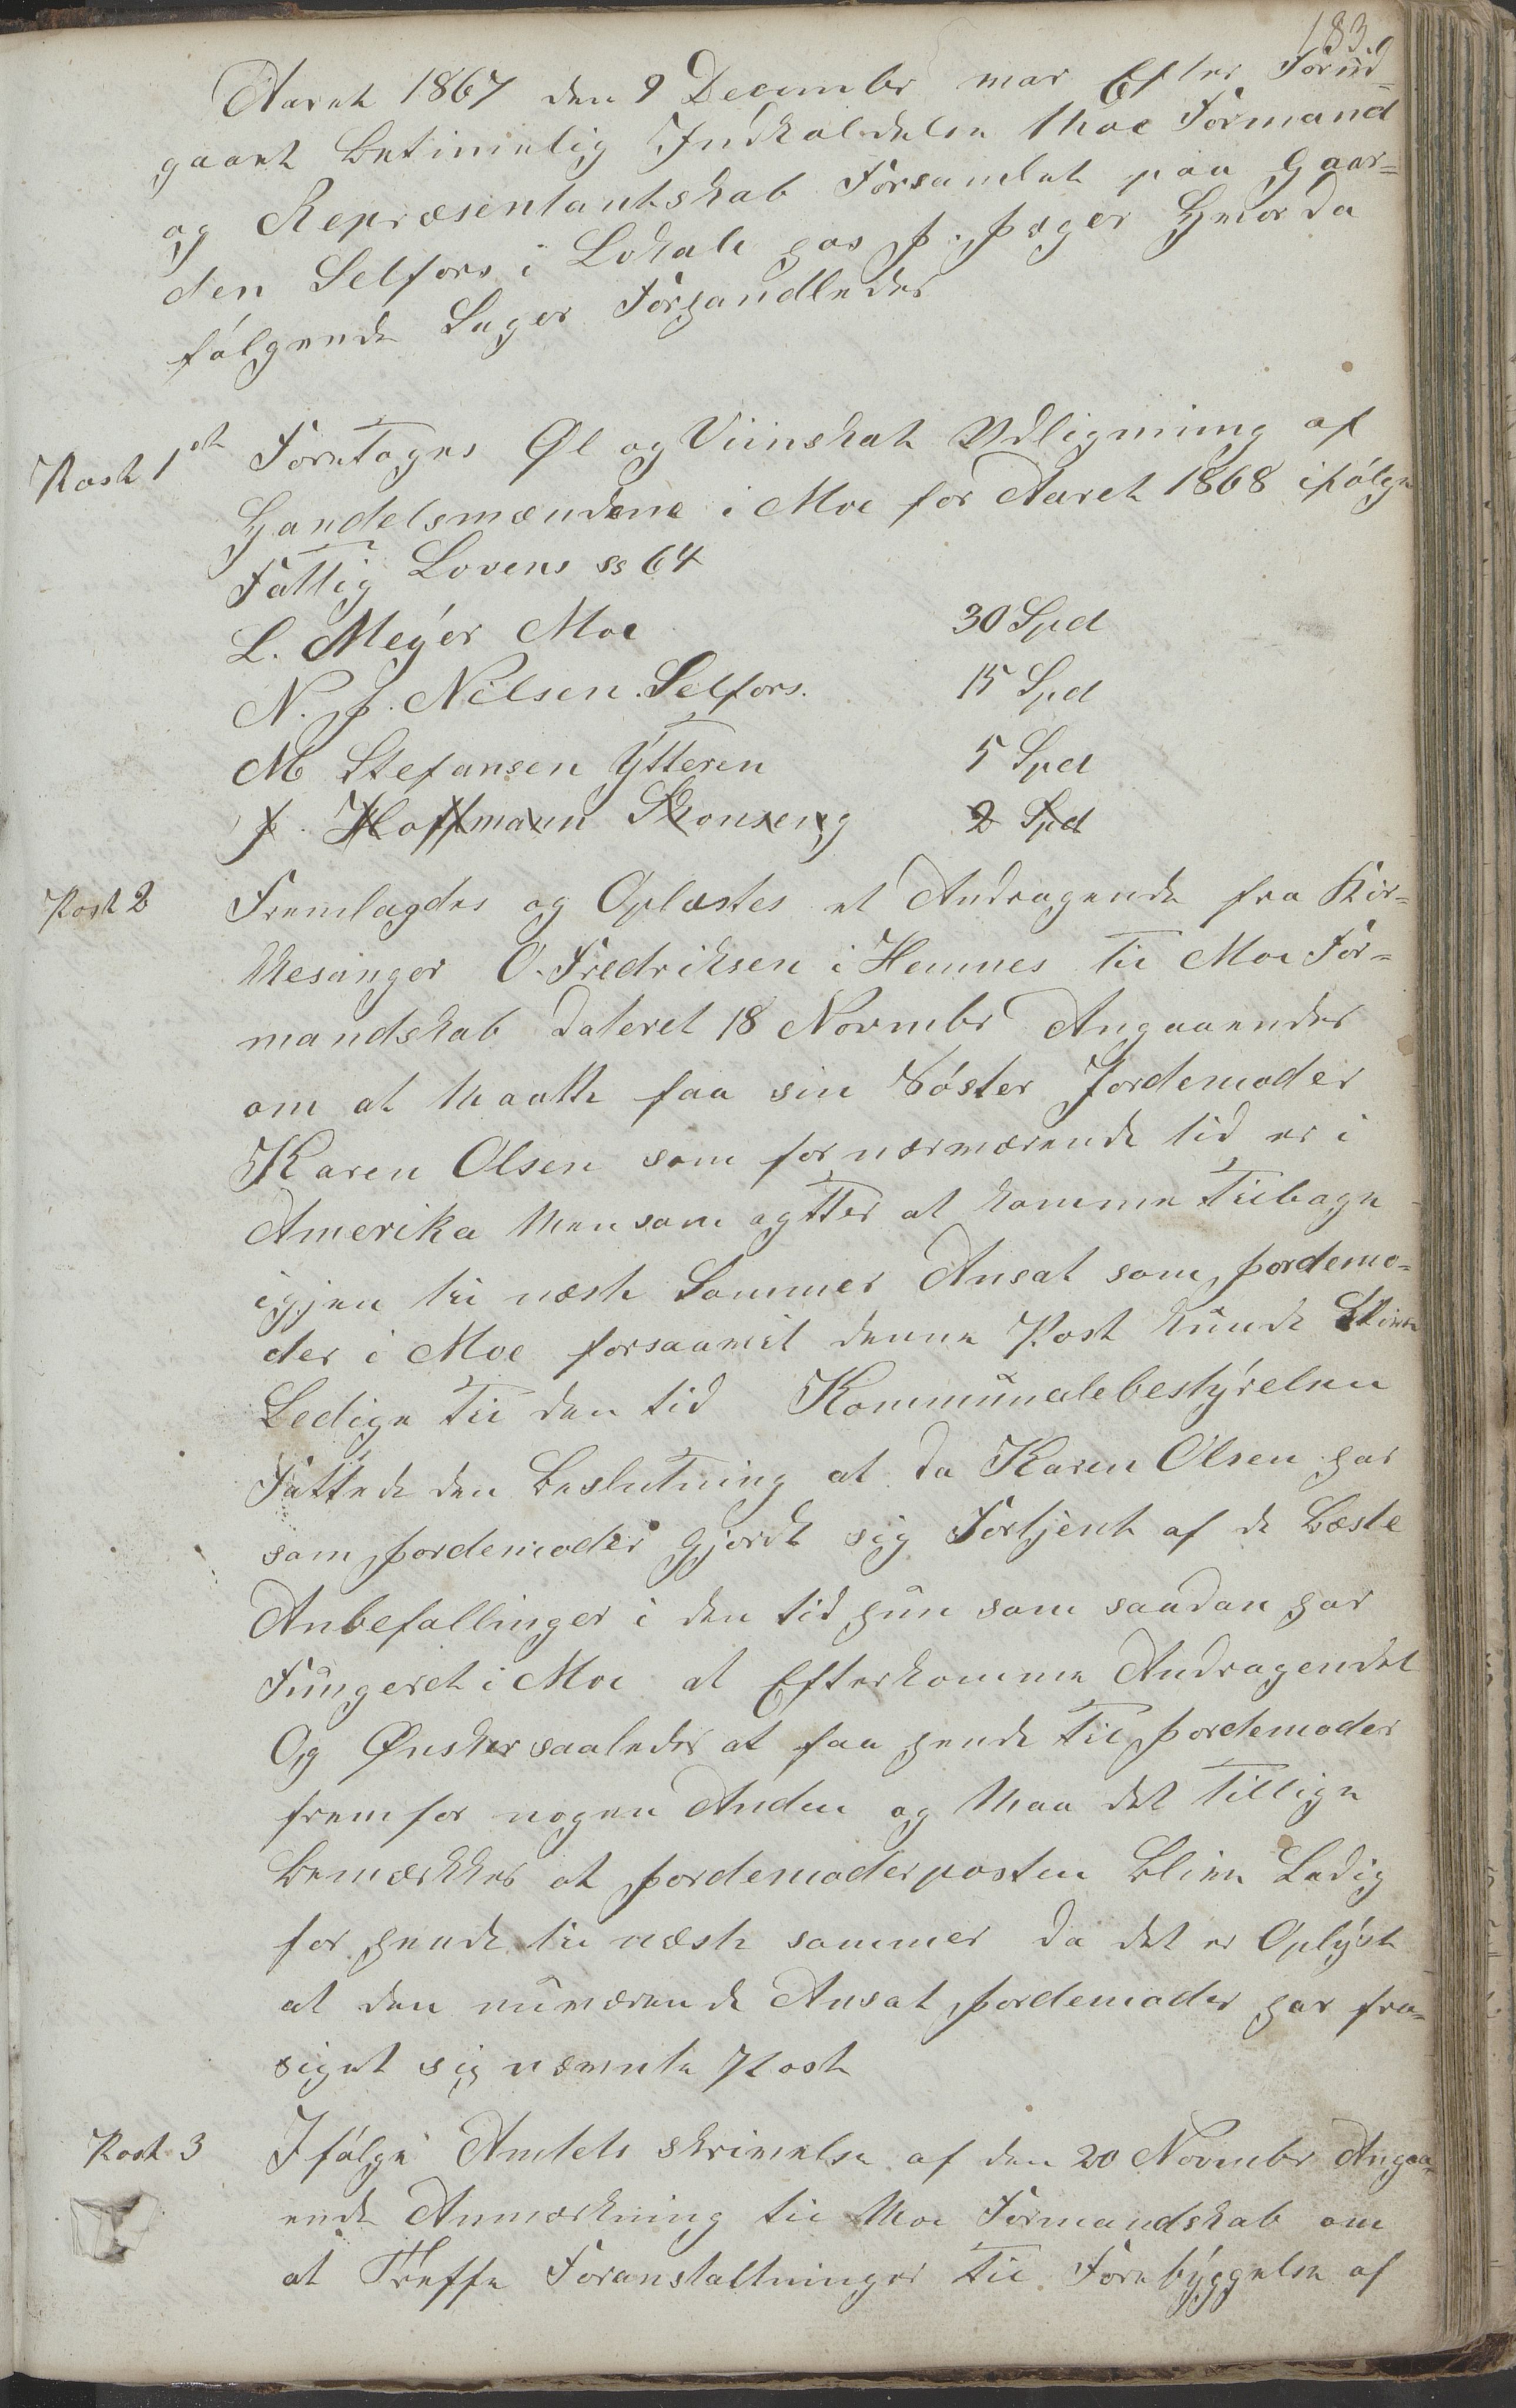 183.
Aaret 1867 den 9 Decembr var Efter Forud-
gaaet betimelig Indkaldelse Moe Formand
og Repræsentantskab Forsamlet paa Gaar=
den Selfors i Lokale hos J. Jæger Hvor da
følgende Sager Forhandledes
Post 1st Foretages Øl og Viinskat Udligning af
Handelsmændene i Moe for Aaret 1868 ifølge
Fattig Lovens ss 64
L. Meÿer Moe 30 Spd
N. J. Nilsen. Selfors. 15 Spd
M Stefansen Ÿtteren 5 Spd
J. Hoffmann Skonseng 2 Spd
Post 2 Fremlagdes og Oplæstes et Andragende fra Kir=
kesanger O. Fredriksen i Hemnes til Moe For=
mandskab dateret 18 Novembr Angaaendes
om at Maatte faa sin Søster Jordemoder
Karen Olsen som for nærværende tid er i
Amerika Men som agtter at komme Tilbage
igjen til næste Sommer Ansat som Jordemo=
der i Moe forsaavit denne Post kunde Blive
Ledige til den tid Kommunalebestÿrelsen
Fattede den Beslutning at da Karen Olsen har
som Jordemoder gjordt sig Fortjent af de Bæste
Anbefallinger i den tid hun som saadan har
Fungeret i Moe at Efterkomme Andragendet
Og Ønsker saaledes at faa hende til Jordemoder
frem for nogen Anden og Maa det Tillige
Bemærkkes at Jordemoderposten Blive Ledig
for hende til næste sommer da det er Oplÿst
at den nuværende Ansat Jordemoder har fra=
siget sig nævnte Post
Post 3 Ifølge Amtets skrivelse af den 20 Novembr Angaa=
ende Anmærkning til Moe Formandskab om
at Treffe Foranstaltninger til Forebÿggelse af